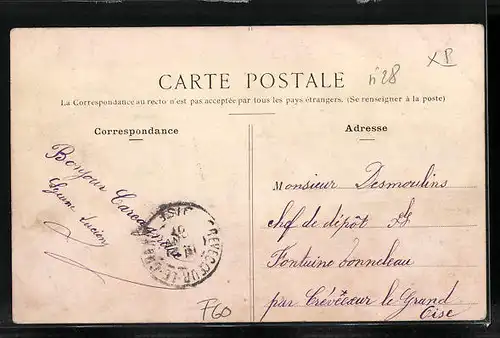 n°28
CARTE POSTALE
La Correspondance au recto n'est pas acceptée par tous les pays étrangers. (Se renseigner à la poste)
Correspondance
Bonjour
Lucien
F60
Adresse
Monsieur Desmoulins
chef de dépôt
Fontaine Bonneleau
par Crévecœur le Grand
Oise